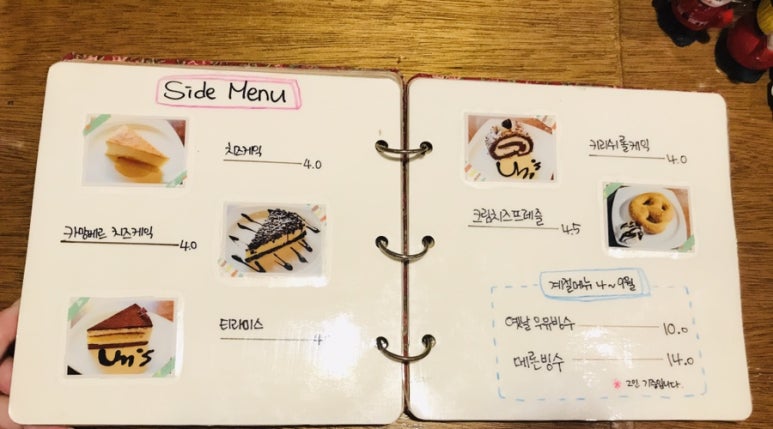 Side Menu
치즈케익 4.0
카망베르 치즈케익 4.0
Un's
티라미스
Un's
키리쉬롤케익 4.0
크림치즈프레즐 4.5
계절메뉴 4~9월
옛날우유빙수 10.0
메론빙수 14.0
※ 2인 기준입니다.